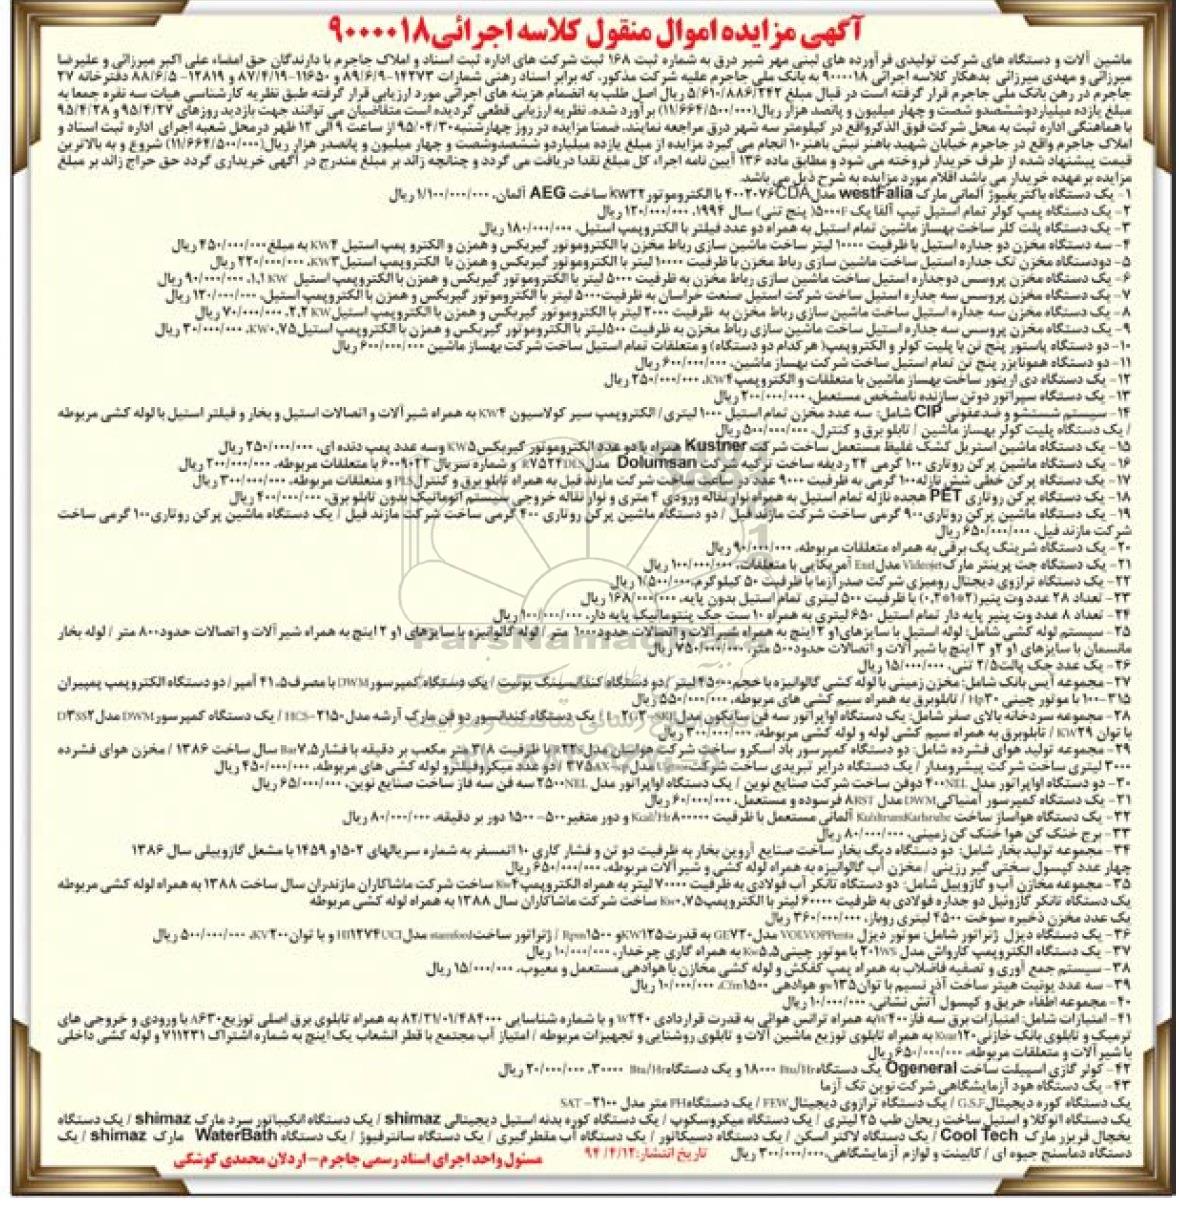 آگهی مزایده اموال منقول کلاسه اجرائی۹۰۰۰۰۱۸
ماشین آلات و دستگاه های شرکت تولیدی فرآورده های لبنی مهر شیر درق به شماره ثبت ۱۶۸ ثبت شرکت های اداره ثبت اسناد و املاک جاجرم با دارندگان حق امضاء علی اکبر میرزائی و علیرضا
میرزائی و مهدی میرزائی بدهکار کلاسه اجرائی ۹۰۰۰۰۱۸ به بانک ملی جاجرم علیه شرکت مذکور، که برابر اسناد رهنی شمارات ۱۴۲۷۳-۸۹/۶/۹ و ۱۱۶۵۰-۸۷/۴/۱۹ و ۱۲۸۱۹-۸۸/۶/۵ دفترخانه ۲۷
جاجرم در رهن بانک ملی جاجرم قرار گرفته است در قبال مبلغ ۵/۶۱۰/۸۸۶/۲۴۲ ریال اصل طلب به انضمام هزینه های اجرائی مورد ارزیابی قرار گرفته طبق نظریه کارشناسی هیات سه نفره جمعا به
مبلغ یازده میلیاردوششصدو شصت و چهار میلیون و پانصد هزار ریال(۱۱/۶۶۴/۵۰۰/۰۰۰) برآورد شده، نظریه ارزیابی قطعی گردیده است متقاضیان می توانند جهت بازدید روزهای ۹۵/۴/۲۷ و ۹۵/۴/۲۸
با هماهنگی اداره ثبت به محل شرکت فوق الذکرواقع در کیلومتر سه شهر درق مراجعه نمایند، ضمنا مزایده در روز چهارشنبه۹۵/۰۴/۳۰ از ساعت ۹ الی ۱۲ ظهر درمحل شعبه اجرای اداره ثبت اسناد و
املاک جاجرم واقع در جاجرم خیابان شهید باهنر نبش باهنر۱۰ انجام می گیرد مزایده از مبلغ یازده میلیاردو ششصدوشصت و چهار میلیون و پانصدر هزار ریال(۱۱/۶۶۴/۵۰۰/۰۰۰) شروع و به بالاترین
قیمت پیشنهاد شده از طرف خریدار فروخته می شود و مطابق ماده ۱۳۶ آیین نامه اجراء کل مبلغ نقدا دریافت می گردد و چنانچه زائد بر مبلغ مندرج در آگهی خریداری گردد حق حراج زائد بر مبلغ
مزایده بر عهده خریدار می باشد اقلام مورد مزایده به شرح ذیل می باشد.
۱- یک دستگاه باکتریفیوژ آلمانی مارک westFalia مدل۴۰۰۲۰۷۶CDA با الکتروموتور kw۲۲ ساخت AEG آلمان، ۱/۱۰۰/۰۰۰/۰۰۰ ریال
۲- یک دستگاه پمپ کولر تمام استیل تیپ آلفا یک ۵۰۰۰F( پنج تنی) سال ۱۹۹۴، ۱۲۰/۰۰۰/۰۰۰ ریال
۳- یک دستگاه پلت کلر ساخت بهساز ماشین تمام استیل به همراه دو عدد فیلتر با الکتروپمپ استیل، ۱۸۰/۰۰۰/۰۰۰ ریال
۴- سه دستگاه مخزن دو جداره استیل با ظرفیت ۱۰۰۰۰ لیتر ساخت ماشین سازی رباط مخزن با الکتروموتور گیربکس و همزن و الکترو پمپ استیل KW۴ به مبلغ۴۵۰/۰۰۰/۰۰۰ ریال
۵- دودستگاه مخزن تک جداره استیل ساخت ماشین سازی رباط مخزن با ظرفیت ۱۰۰۰۰ لیتر با الکتروموتور گیربکس و همزن با الکتروپمپ استیلKW۳، ۲۲۰/۰۰۰/۰۰۰ ریال
۶- یک دستگاه مخزن پروسس دوجداره استیل ساخت ماشین سازی رباط مخزن به ظرفیت ۵۰۰۰ لیتر با الکتروموتور گیربکس و همزن با الکتروپمپ استیل ۱٫۱ KW، ۹۰/۰۰۰/۰۰۰ ریال
۷- یک دستگاه مخزن پروسس سه جداره استیل ساخت شرکت استیل صنعت خراسان به ظرفیت۵۰۰۰ لیتر با الکتروموتور گیربکس و همزن با الکتروپمپ استیل، ۱۲۰/۰۰۰/۰۰۰ ریال
۸- یک دستگاه مخزن سه جداره استیل ساخت ماشین سازی رباط مخزن به ظرفیت ۲۰۰۰ لیتر با الکتروموتور گیربکس و همزن با الکتروپمپ استیل۲٫۲ KW، ۷۰/۰۰۰/۰۰۰ ریال
۹- یک دستگاه مخزن پروسس سه جداره استیل ساخت ماشین سازی رباط مخزن به ظرفیت ۵۰۰لیتر با الکتروموتور گیربکس و همزن با الکتروپمپ استیلKW۰٫۷۵، ۳۰/۰۰۰/۰۰۰ ریال
۱۰- دو دستگاه پاستور پنج تن با پلیت کولر و الکتروپمپ( هرکدام دو دستگاه) و متعلقات تمام استیل ساخت شرکت بهساز ماشین ۶۰۰/۰۰۰/۰۰۰ ریال
۱۱- دو دستگاه هموناپزر پنج تن تمام استیل ساخت شرکت بهساز ماشین، ۶۰۰/۰۰۰/۰۰۰ ریال
۱۲- یک دستگاه دی اریتور ساخت بهساز ماشین با متعلقات و الکتروپمپKW۴، ۲۵۰/۰۰۰/۰۰۰ ریال
۱۳- یک دستگاه سپراتور دوتن سازنده نامشخص مستعمل، ۲۰۰/۰۰۰/۰۰۰ ریال
۱۴- سیستم شستشو و ضدعفونی CIP شامل: سه عدد مخزن تمام استیل ۱۰۰۰ لیتری/ الکتروپمپ سیر کولاسیون KW۴ به همراه شیرآلات و اتصالات استیل و بخار و فیلتر استیل با لوله کشی مربوطه
/ یک دستگاه پلیت کولر بهساز ماشین / تابلو برق و کنترل، ۵۰۰/۰۰۰/۰۰۰ ریال
۱۵- یک دستگاه ماشین استریل کشک غلیظ مستعمل ساخت شرکت Kustner همراه با دو عدد الکتروموتور گیربکسKW۵ وسه عدد پمپ دنده ای، ۲۵۰/۰۰۰/۰۰۰ ریال
۱۶- یک دستگاه ماشین پرکن روتاری ۱۰۰ گرمی ۲۴ ردیفه ساخت ترکیه شرکت Dolumsan مدلR۷۵۲۴DES و شماره سریال ۶۰۰۹۰۲۲ با متعلقات مربوطه، ۲۰۰/۰۰۰/۰۰۰ ریال
۱۷- یک دستگاه پرکن خطی شش نازله۱۰۰ گرمی به ظرفیت ۹۰۰۰ عدد در ساعت ساخت شرکت مازند فیل به همراه تابلو برق و کنترلPLS و متعلقات مربوطه، ۳۰۰/۰۰۰/۰۰۰ ریال
۱۸- یک دستگاه پرکن روتاری PET هجده نازله تمام استیل به همراه نوار نقاله ورودی ۴ متری و نوار نقاله خروجی سیستم اتوماتیک بدون تابلو برق، ۴۰۰/۰۰۰/۰۰۰ ریال
۱۹- یک دستگاه ماشین پرکن روتاری۹۰۰ گرمی ساخت شرکت مازند فیل / دو دستگاه ماشین پرکن روتاری ۴۰۰ گرمی ساخت شرکت مازند فیل / یک دستگاه ماشین پرکن روتاری۱۰۰ گرمی ساخت
شرکت مازند فیل، ۶۵۰/۰۰۰/۰۰۰ ریال
۲۰- یک دستگاه شرینک پک برقی به همراه متعلقات مربوطه، ۹۰/۰۰۰/۰۰۰ ریال
۲۱- یک دستگاه جت پرینتر مارکVideojet مدلExel آمریکایی با متعلقات، ۱۰۰/۰۰۰/۰۰۰ ریال
۲۲- یک دستگاه ترازوی دیجتال رومیزی شرکت صدرآزما با ظرفیت ۵۰ کیلوگرم،۱/۵۰۰/۰۰۰ ریال
۲۳- تعداد ۲۸ عدد وت پنیر(۲*۱*۰٫۲) با ظرفیت ۵۰۰ لیتری تمام استیل بدون پایه، ۱۶۸/۰۰۰/۰۰۰ ریال
۲۴- تعداد ۸ عدد وت پنیر پایه دار تمام استیل ۶۵۰ لیتری به همراه ۱۰ ست جک پنتوماتیک پایه دار، ۱۰۰/۰۰۰/۰۰۰ ریال
۲۵- سیستم لوله کشی شامل: لوله استیل با سایزهای۱و ۲ اینچ به همراه شیرآلات و اتصالات حدود۱۰۰۰ متر / لوله گالوانیزه با سایزهای ۱و ۲ اینچ به همراه شیرآلات و اتصالات حدود۸۰۰ متر / لوله بخار
مانسمان با سایزهای ۱و ۲و ۳ اینچ با شیرآلات و اتصالات حدود۵۰۰ متر، ۷۵۰/۰۰۰/۰۰۰ ریال
۲۶- یک عدد جک پالت۲/۵ تنی، ۱۵/۰۰۰/۰۰۰ ریال
۲۷- مجموعه آیس بانک شامل: مخزن زمینی با لوله کشی گالوانیزه با حجم۴۵۰۰۰لیتر / دو دستگاه کندانسینگ یونیت / یک دستگاه کمپرسورDWM با مصرف۴۱٫۵ آمپر/ دو دستگاه الکتروپمپ پمپیران
۳۱۵-۱۰۰ با موتور چینی Hp۳۰ / تابلوبرق به همراه سیم کشی های مربوطه، ۵۵۰/۰۰۰/۰۰۰ ریال
۲۸- مجموعه سردخانه بالای صفر شامل: یک دستگاه اواپراتور سه فن سایکون مدل / یک دستگاه کندانسور دو فن مارک آرشه مدل۲۱۵۰-HCS / یک دستگاه کمپرسورDWM مدلD۳SS۲
با توان KW۲۹ / تابلوبرق به همراه سیم کشی لوله و لوله کشی مربوطه، ۳۰۰/۰۰۰/۰۰۰ ریال
۲۹- مجموعه تولید هوای فشرده شامل: دو دستگاه کمپرسور باد اسکرو ساخت شرکت هواسان مدلR۲۲S با ظرفیت ۳/۸ متر مکعب بر دقیقه با فشارBar۷٫۵ سال ساخت ۱۳۸۶ / مخزن هوای فشرده
۳۰۰۰ لیتری ساخت شرکت پیشرومدار / یک دستگاه درایر تبریدی ساخت شرکت / دو عدد میکروفیلترو لوله کشی های مربوطه، ۴۵۰/۰۰۰/۰۰۰ ریال
۳۰- دو دستگاه اواپراتور مدل ۴۰۰NEL دوفن ساخت شرکت صنایع نوین / یک دستگاه اواپراتور مدل ۲۵۰۰NEL سه فن سه فاز ساخت صنایع نوین، ۶۵/۰۰۰/۰۰۰ ریال
۳۱- یک دستگاه کمپرسور آمنیاکیDWM مدل ۸RST فرسوده و مستعمل، ۶۰/۰۰۰/۰۰۰ ریال
۳۲- یک دستگاه هواساز ساخت آلمانی مستعمل با ظرفیت Kcal/Hr۸۰۰۰۰۰ و دور متغیر۵۰۰- ۱۵۰۰ دور بر دقیقه، ۸۰/۰۰۰/۰۰۰ ریال
۳۳- برج خنک کن هوا خنک کن زمینی، ۸۰/۰۰۰/۰۰۰ ریال
۳۴- مجموعه تولید بخار شامل: دو دستگاه دیگ بخار ساخت صنایع آروین بخار به ظرفیت دو تن و فشار کاری ۱۰ اتمسفر به شماره سریالهای ۱۵۰۲و ۱۴۵۹ با مشعل گازوییلی سال ۱۳۸۶
چهار عدد کپسول سختی گیر رزینی / مخزن آب گالوانیزه به همراه لوله کشی و شیرآلات مربوطه، ۶۵۰/۰۰۰/۰۰۰ ریال
۳۵- مجموعه مخازن آب و گازوییل شامل: دو دستگاه تانکر آب فولادی به ظرفیت ۷۰۰۰۰ لیتر به همراه الکتروپمپKw۴ ساخت شرکت ماشاکاران مازندران سال ساخت ۱۳۸۸ به همراه لوله کشی مربوطه
یک دستگاه تانکر گازوئیل دو جداره فولادی به ظرفیت ۶۰۰۰۰ لیتر با الکتروپمپKw۰٫۷۵ ساخت شرکت ماشاکاران سال ۱۳۸۸ به همراه لوله کشی مربوطه
یک عدد مخزن ذخیره سوخت ۴۵۰۰ لیتری روباز، ۳۶۰/۰۰۰/۰۰۰ ریال
۳۶- یک دستگاه دیزل ژنراتور شامل: موتور دیزل VOLVOPPenta مدلGE۷۲۰ به قدرتKW۱۲۵و Rpm۱۵۰۰ / ژنراتور ساختstamford مدلHI۲۷۴UCI و با توانKV۲۰۰، ۵۰۰/۰۰۰/۰۰۰ ریال
۳۷- یک دستگاه الکتروپمپ کارواش مدل ۲۰۱WS با موتور چینیKw۵٫۵ به همراه گاری چرخدار، ۱۰/۰۰۰/۰۰۰ ریال
۳۸- سیستم جمع آوری و تصفیه فاضلاب به همراه پمپ کفکش و لوله کشی مخازن با هوادهی مستعمل و معیوب، ۱۵/۰۰۰/۰۰۰ ریال
۳۹- سه عدد یونیت هیتر ساخت آذر نسیم با توانw۱۳۵و هوادهی Cfm۱۵۰۰، ۱۰/۰۰۰/۰۰۰ ریال
۴۰- مجموعه اطفاء حریق و کپسول آتش نشانی، ۱۰/۰۰۰/۰۰۰ ریال
۴۱- امتیازات شامل: امتیازات برق سه فاز۴۰۰Wبه همراه ترانس هوائی به قدرت قراردادی W۲۴۰ و با شماره شناسایی ۸۲/۲۱/۰۱/۴۸۴۰۰۰ به همراه تابلوی برق اصلی توزیعA۶۳۰ با ورودی و خروجی های
ترمیک و تابلوی بانک خازنیKvar۱۲۰ به همراه تابلوی توزیع ماشین آلات و تابلوی روشنایی و تجهیزات مربوطه / امتیاز آب مجتمع با قطر انشعاب یک اینچ به شماره اشتراک ۷۱۱۲۳۱ و لوله کشی داخلی
با شیرآلات و متعلقات مربوطه، ۶۵۰/۰۰۰/۰۰۰ ریال
۴۲- کولر گازی اسپیلت ساخت Ogeneral یک دستگاهBtu/Hr ۱۸۰۰۰ و یک دستگاهBtu/Hr ۳۰۰۰۰، ۲۰/۰۰۰/۰۰۰ ریال
۴۳- یک دستگاه هود آزمایشگاهی شرکت نوین تک آزما
یک دستگاه کوره دیجیتالG.S.F / یک دستگاه ترازوی دیجیتالFEW / یک دستگاهPH متر مدل SAT - ۲۱۰۰
یک دستگاه اتوکلاو استیل ساخت ریحان طب ۲۵ لیتری / یک دستگاه میکروسکوپ / یک دستگاه کوره بدنه استیل دیجیتالی shimaz / یک دستگاه انکیباتور سرد مارک shimaz / یک دستگاه
یخچال فریزر مارک Cool Tech / یک دستگاه لاکتر اسکن / یک دستگاه دسیکاتور / یک دستگاه آب مقطرگیری / یک دستگاه سانترفیوژ / یک دستگاه WaterBath مارک shimaz / یک
دستگاه دماسنج جیوه ای / کابینت و لوازم آزمایشگاهی،۳۰۰/۰۰۰/۰۰۰ ریال تاریخ انتشار:۹۴/۴/۱۲ مسئول واحد اجرای اسناد رسمی جاجرم-اردلان محمدی کوشکی
ParsNamadData